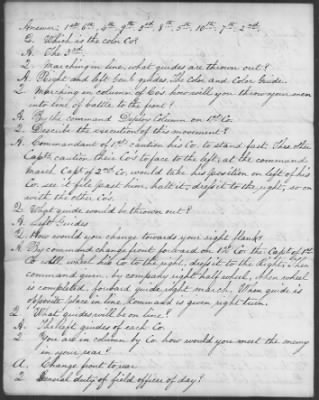 Answer, 1st 6th, 4th 9th 3d 8th, 5th, 10th, 7th, 2nd.
Q Which is the color Co?
A The 3rd
Q Marching in line, what guides are thrown out?
A Right and left Genl guides. The Color and Color Guide.
Q Marching in column of Co's how will you throw your men
into line of battle to the front?
A By the command Deploy Column on 1st Co.
Q Describe the execution of this movement?
A Commandant of 1st caution his Co. to stand fast. The other
Capts. caution their Co's to face to the left, at the command
March Capt of 2nd Co. would take his position on left of his
Co. see it file past him, halt it, dress it to the right, so on
with the other Co's.
Q What guide would be thrown out?
A Left Guides
Q How would you change towards your right flank
A By command change front forward on 1st Co. the Capt of 1st
Co. will wheel his Co. to the right, dress it to the Right, Then
command given, by company right half wheel, when wheel
is completed, forward guide right march. When guide is
opposite place in line Command is given right turn.
Q What guides will be on line?
A The right guides of each Co.
Q You are in column by Co. how would you meet the enemy
in your rear?
A. Change front to rear
Q General duty of field officer of day?